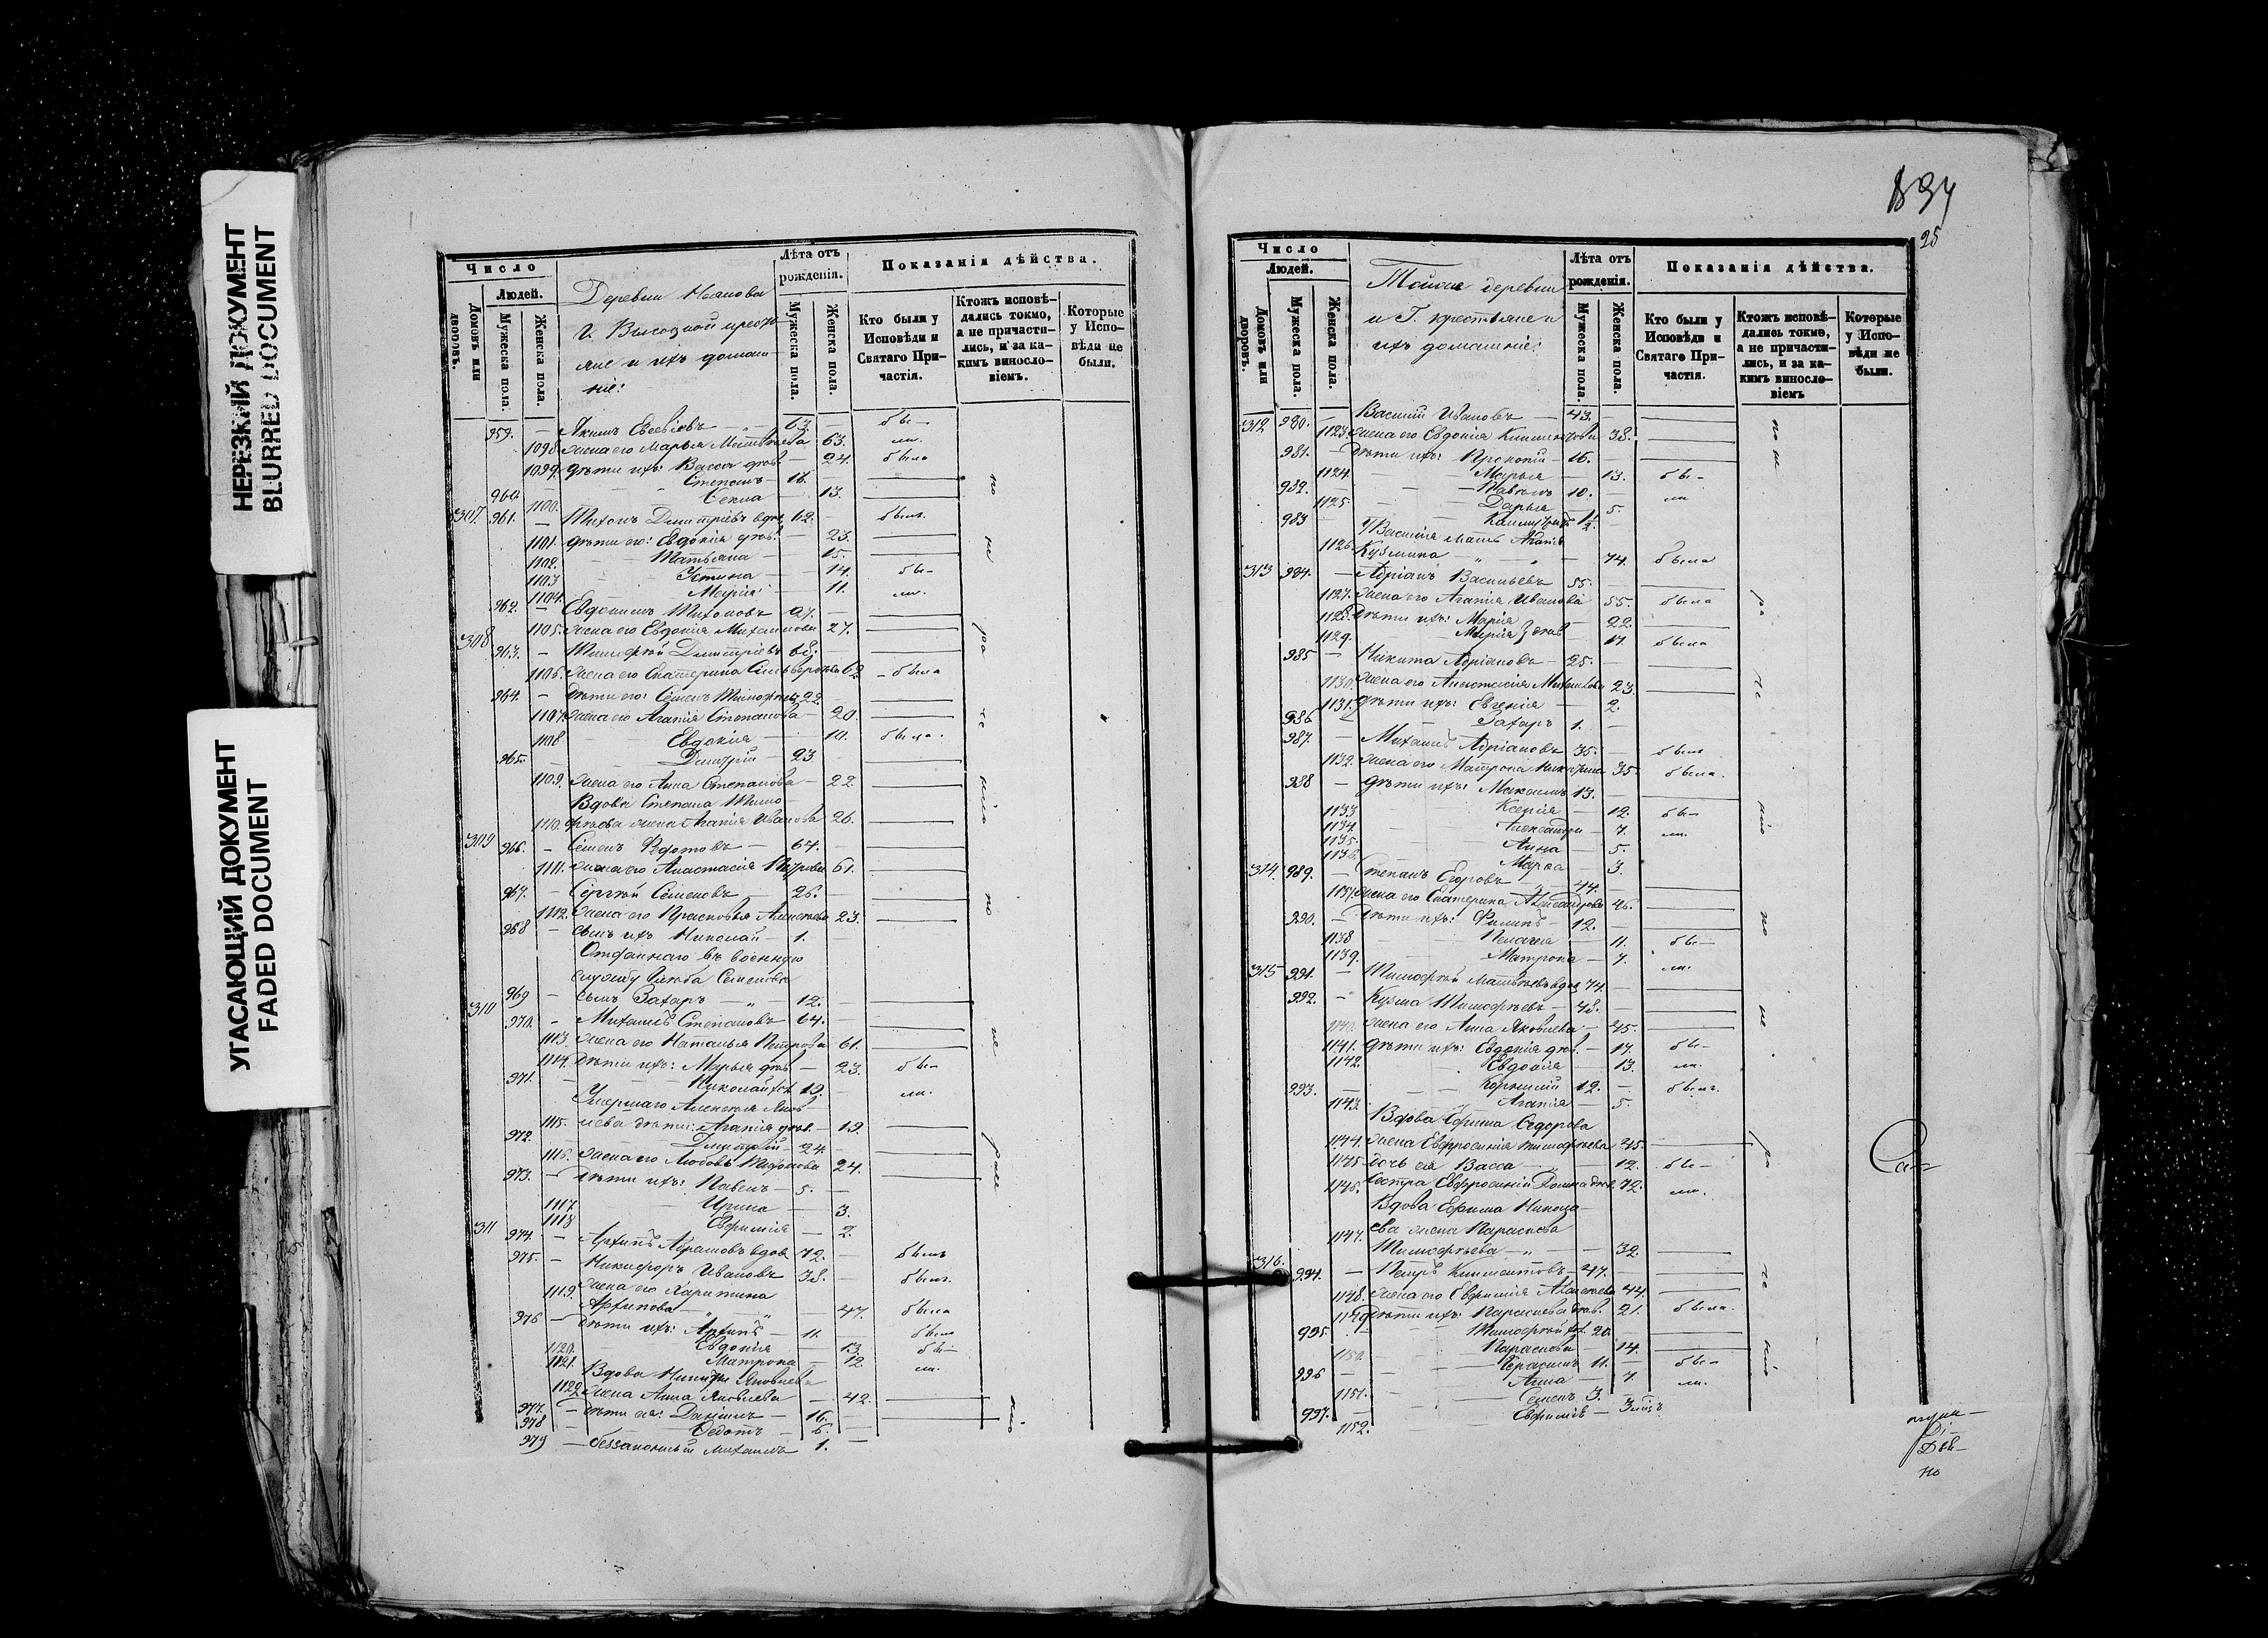 НЕРЕЗКИЙ ДОКУМЕНТ
BLURRED DOCUMENT
УГАСАЮЩИЙ ДОКУМЕНТ
FADED DOCUMENT
Число
Людей.
Домовъ или дворовъ.
Мужеска пола.
Женска пола.
Деревни
и ихъ домаш-
ніе:
Лѣта отъ рожденія.
Мужеска пола.
Женска пола.
Показанія дѣйства.
Кто были у Исповѣди и Святаго При-частія.
Ктожъ исповѣ-дались токмо, а не причасти-лись, и за ка-кимъ винослο-віемъ.
Которые у Испо-вѣди не были.
959. — Якимъ Евсѣіовъ — 63. —
1098. жена его Марья Матвѣева 63.
1099. дѣти ихъ: Васса дѣв. — 24. была
960. Степанъ — 16.
1100. Секла — 13.
307 961. — Тихонъ Дмитріевъ вдов. 62. — былъ
1101. дѣти его: Евдокія дѣв. — 23.
1102. Татьяна — 15.
1103 Устина — 14. бы-
1104. Марія — 11. ли.
962. — Евдокимъ Тихоновъ 27. —
1105. жена его Евдокія Михаилова 27.
308 963. — Тимофей Дмитріевъ
1106. жена его Екатерина Сильверстова 62 — была
964. — дѣти его: Семенъ Тимофеевъ 22.
1107. жена его Агапія Степанова — 20.
1108 Евдокія — 10. была.
965. Дмитрій — 23
1109. жена его Анна Степанова — 22.
Вдова Степана Тимо-
1110. фѣева жена Агапія Иванова 26.
309 966. — Семенъ Федотовъ — 64.
1111. жена его Анастасія Петрова 61.
967. — Сергѣй Семеновъ — 26.
1112. жена его Прасковья Алексѣева 23.
968 — сынъ ихъ Николай — 1.
Отданнаго въ военную
службу Глѣба Семенова
969 — сынъ Захаръ — 12. —
310 970. — Михаилъ Степановъ 64. —
1113. жена его Наталья Петрова 61.
1114. дѣти ихъ: Марья дѣв. — 23. бы-
971. Николай 19. ли.
Умершаго Алексѣя Яков-
1115. лева дѣти: Агапія дѣв. — 19.
972. Дмитрій — 24.
1116. жена его Любовь 24.
973. — дѣти ихъ: Павелъ — 5. —
1117 Ирина — 3.
1118 Евфимія — 2.
311 974. — Архипъ Абрамовъ вдов. 72. — былъ
975. — Никифоръ Ивановъ 38. — былъ.
1119. жена его Харитина
Архипова — 47. была
976 — дѣти ихъ: Архипъ — 11. — былъ
1120. Евдокія — 13. бы-
1121. Матрона — 12. ли.
Вдова Никиты Яковлева
1122. жена Анна Яковлева — 42.
977. — дѣти ея: Даніилъ — 16.
978 Федотъ — 6.
979 — беззаконный Михаилъ 1. —
по не ра че нію по не раче нію
834
25
Число
Людей.
Домовъ или дворовъ.
Мужеска пола.
Женска пола.
Тойже деревни
и Г. крестьяне и
ихъ домашніе:
Лѣта отъ рожденія.
Мужеска пола.
Женска пола.
Показанія дѣйства.
Кто были у Исповѣди и Святаго При-частія.
Ктожъ исповѣ-дались токмо, а не причасти-лись, и за ка-кимъ винослο-віемъ
Которые у Испо-вѣди не были.
312 980. Василій Ивановъ — 43. —
1123. жена его Евдокія 38.
981. — дѣти ихъ: Прокопій — 16. —
1124. Марья — 13. бы-
982. Павелъ 10. — ли.
1125. Дарья — 5.
983
Василія мать Агапія
1126. Кузмина — 74. была
313 984. — Адріанъ Васильевъ 55. —
1127. жена его Агапія Иванова 55. была
1128. дѣти ихъ: Марія — 22.
1129. Марія дѣв. 17. была
985 — Никита Адріановъ — 25. —
1130. жена его Анастасія Михайлова 23.
1131. дѣти ихъ: Евгенія — 2.
986 Захаръ 1. —
987. — Михаилъ Адріановъ 35. — былъ
1132. жена его Матрона 35. была.
988 — дѣти ихъ: Максимъ 13. —
1133 Ксенія — 12. бы-
1134. Александра — 7. ли.
1135. Анна — 5.
1136. Марѳа — 3.
314. 989. — Степанъ Егоровъ — 44. —
1137. жена его Екатерина Александрова 46.
990. — дѣти ихъ: Филипъ — 12. —
1138 Пелагія — 11. бы-
1139. Матрона — 7. ли.
315 991. — Тимофей Матвѣевъ вдов. 74. —
992. — Кузма Тимофеевъ — 48. —
1140. жена его Анна Яковлева — 45.
1141. дѣти ихъ: Евдокія дѣв. — 17. бы-
1142. Евдокія — 13. ли.
993. Корнилій 12. — былъ.
1143. Агапія — 5.
Вдова Ефима Федорова
1144. жена Евфросинія Тимофеева 45.
1145. дочь ея Васса — 12. бы-
1146. Сестра Евфросиніи Домна дѣв. 72. ли.
Вдова Ефима Никола-
1147. ева жена Параскева
Тимофѣева — 32.
316. 994. — Петръ Климентовъ — 47.
1148. жена его Евфимія Алексѣева 44
1149. дѣти ихъ: Параскева дѣв. 21. была.
995. Тимофей 20.
1150. Параскева — 14.
996 Герасимъ 11. — бы-
1151. Анна — 7. ли.
997. Семенъ 3. —
1152. Евфимія —
по не ра че нію по не ра че нію